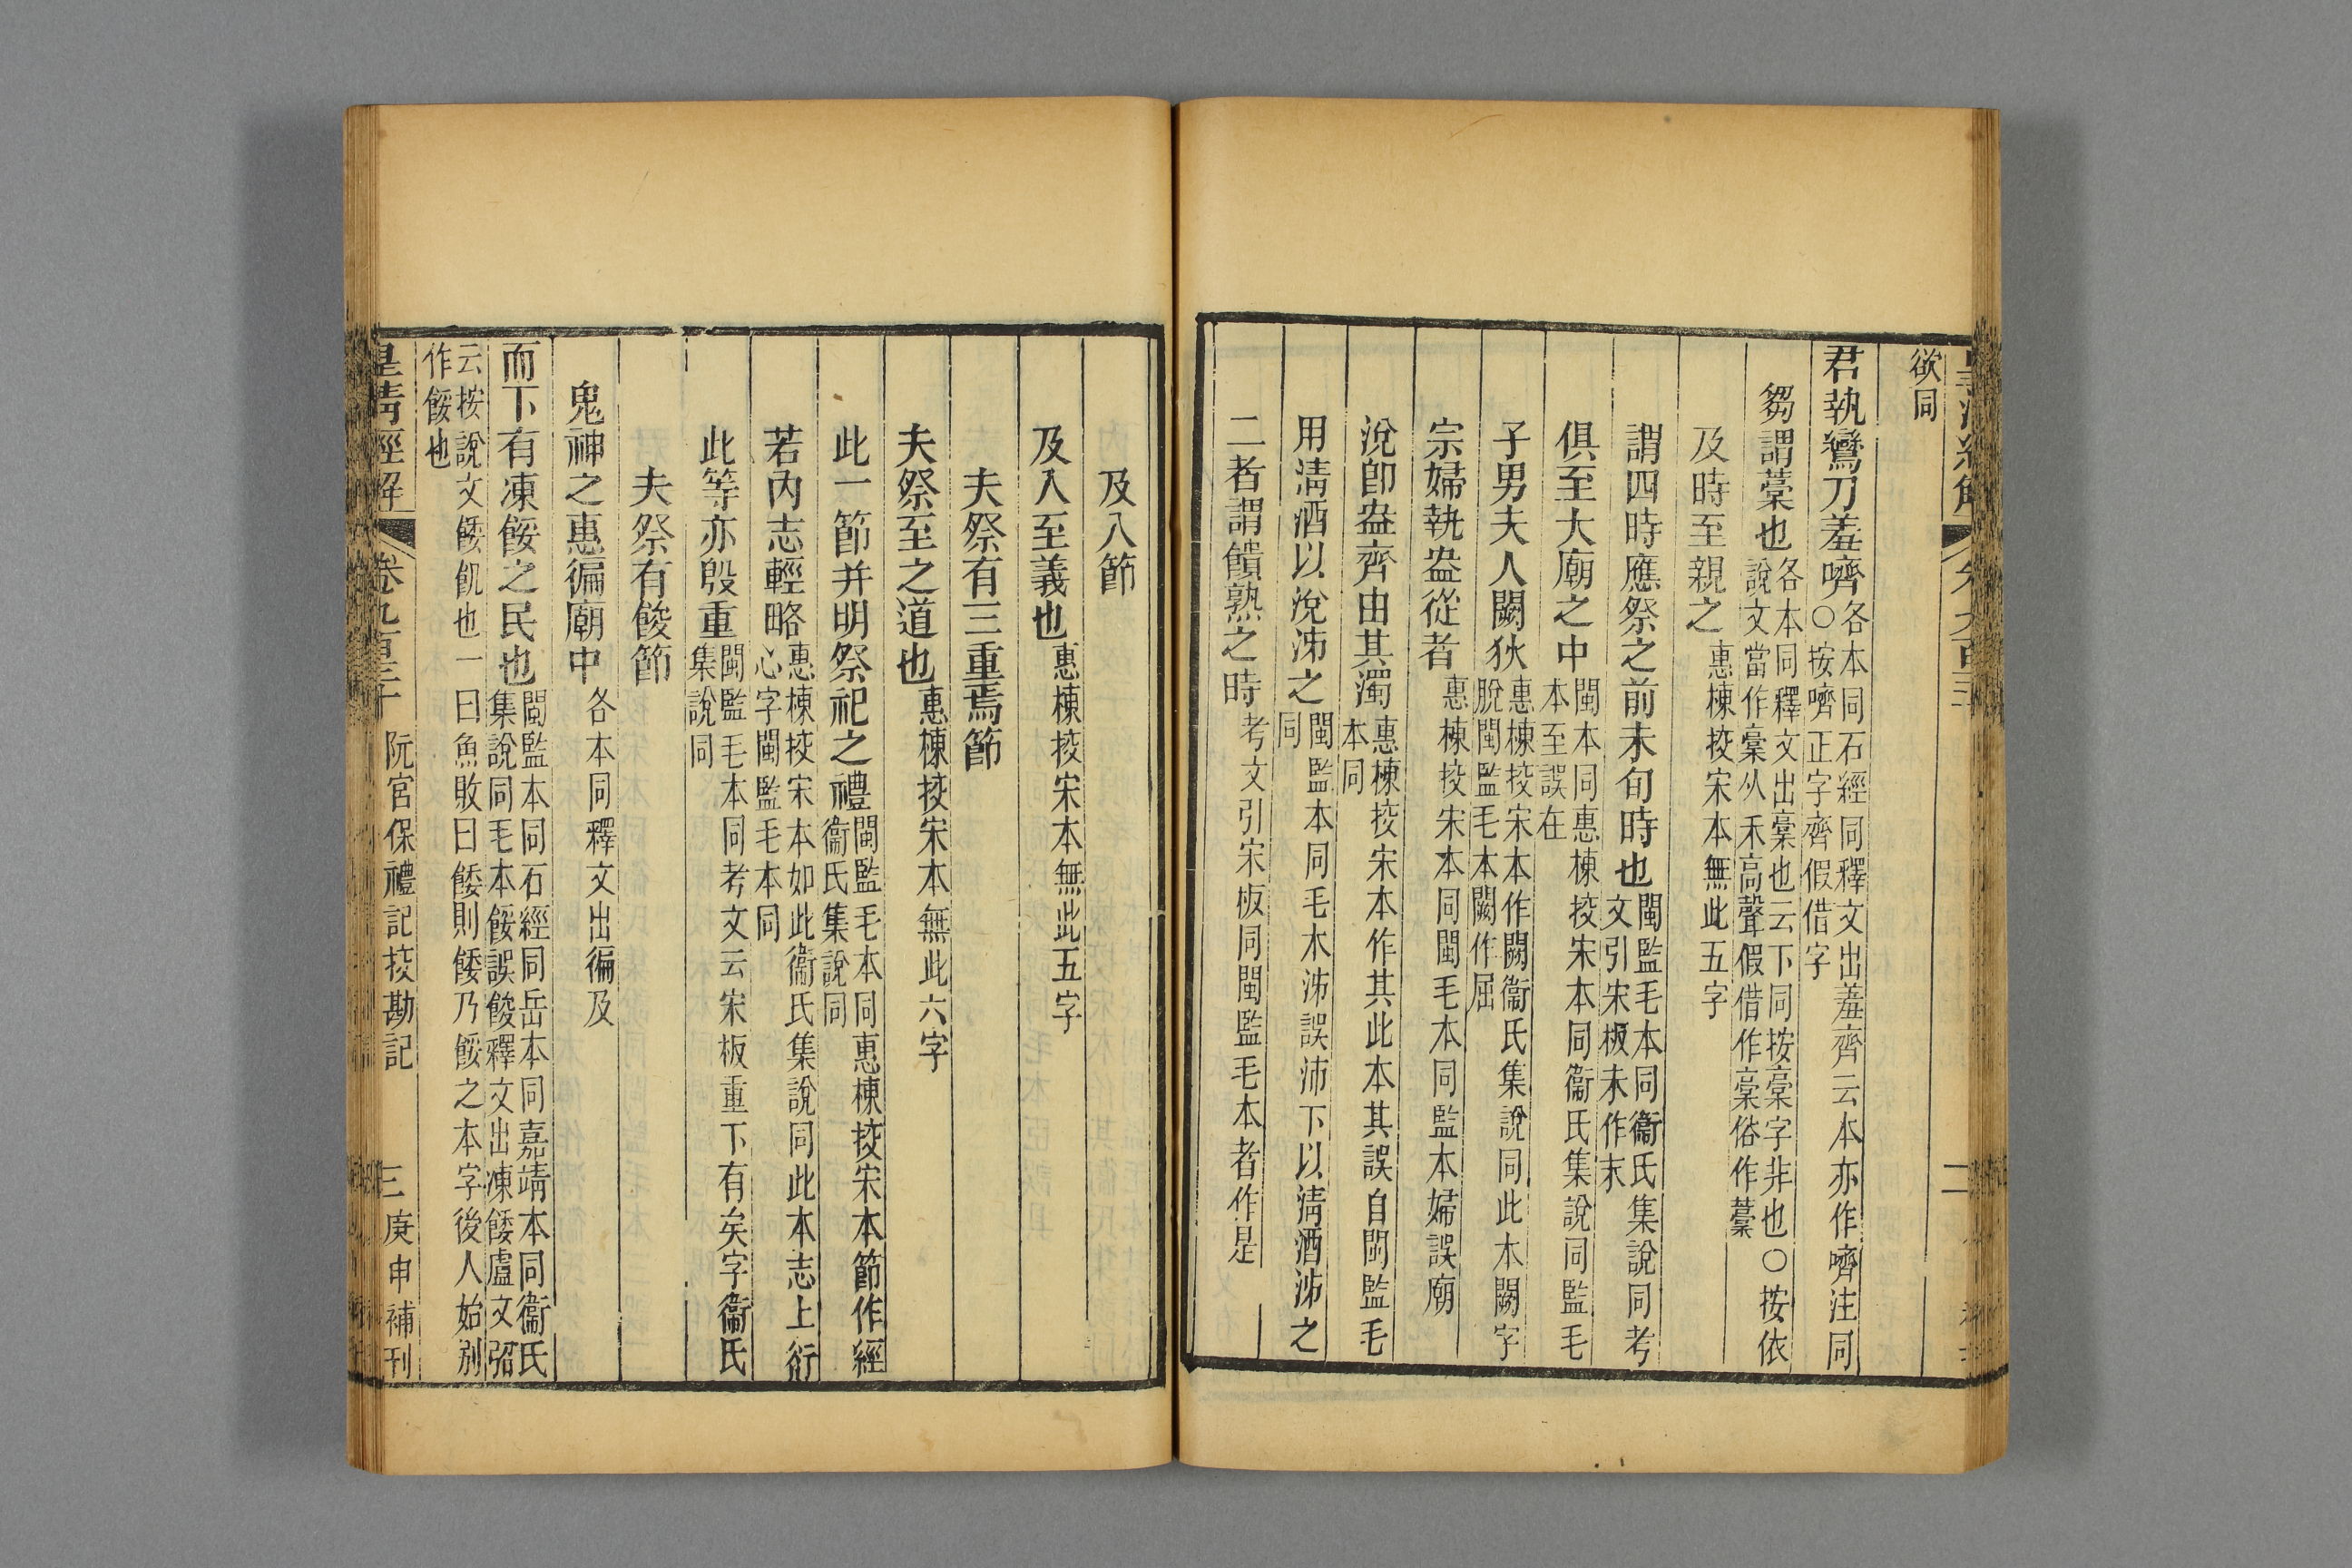 欲同
君執鸞刀羞嚌各本同石經同釋文出羞齊云本亦作嚌注同
○按嚌正字齊假借字
芻謂藁也各本同釋文出稾也云下同按稾字非也○按依
說文當作稾从禾高聲假借作槀俗作藁
及時至親之惠棟挍宋本無此五字
謂四時應祭之前未旬時也閩監毛本同衞氏集說同考
文引宋板未作末
俱至大廟之中閩本同惠棟挍宋本同衞氏集說同監毛
本至誤在
子男夫人闕狄惠棟挍宋本作闕衞氏集說同此本闕字
脫閩監毛本闕作屈
宗婦執盎從者惠棟挍宋本同閩毛本同監本婦誤廟
涗卽盎齊由其濁惠棟挍宋本作其此本其誤自閩監毛
本同
用淸酒以涗泲之閩監本同毛本泲誤沛下以淸酒泲之
同
二者謂饋熟之時考文引宋板同閩監毛本者作是
及入節
及入至義也惠棟挍宋本無此五字
夫祭有三重焉節
夫祭至之道也惠棟挍宋本無此六字
此一節并明祭祀之禮閩監毛本同惠棟挍宋本節作經
衞氏集說同
若內志輕略惠棟挍宋本如此衞氏集說同此本志上衍
心字閩監毛本同
此等亦殷重閩監毛本同考文云宋板重下有矣字衞氏
集說同
夫祭有餕節
鬼神之惠徧廟中各本同釋文出徧及
而下有凍餒之民也閩監本同石經同岳本同嘉靖本同衞氏
集說同毛本餒誤餕釋文出凍餧盧文弨
云按說文餧飢也一曰魚敗曰餧則餧乃餒之本字後人始別
作餒也
皇淸經解 卷九百三十 阮宮保禮記挍勘記 三 庚申補刊